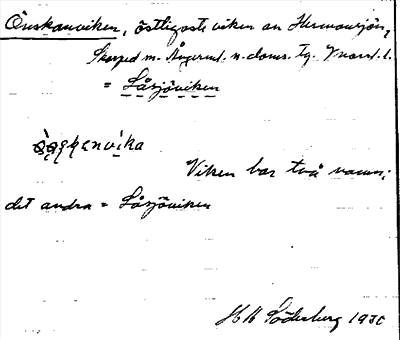 Önskanviken, östligaste viken av Hermansjön,
Skorped m. Ångerml. n. doms. tg. Vnorrl. l.
= Låsjöviken
Viken har två namn;
det andra = Låsjöviken
H H Söderberg 1930